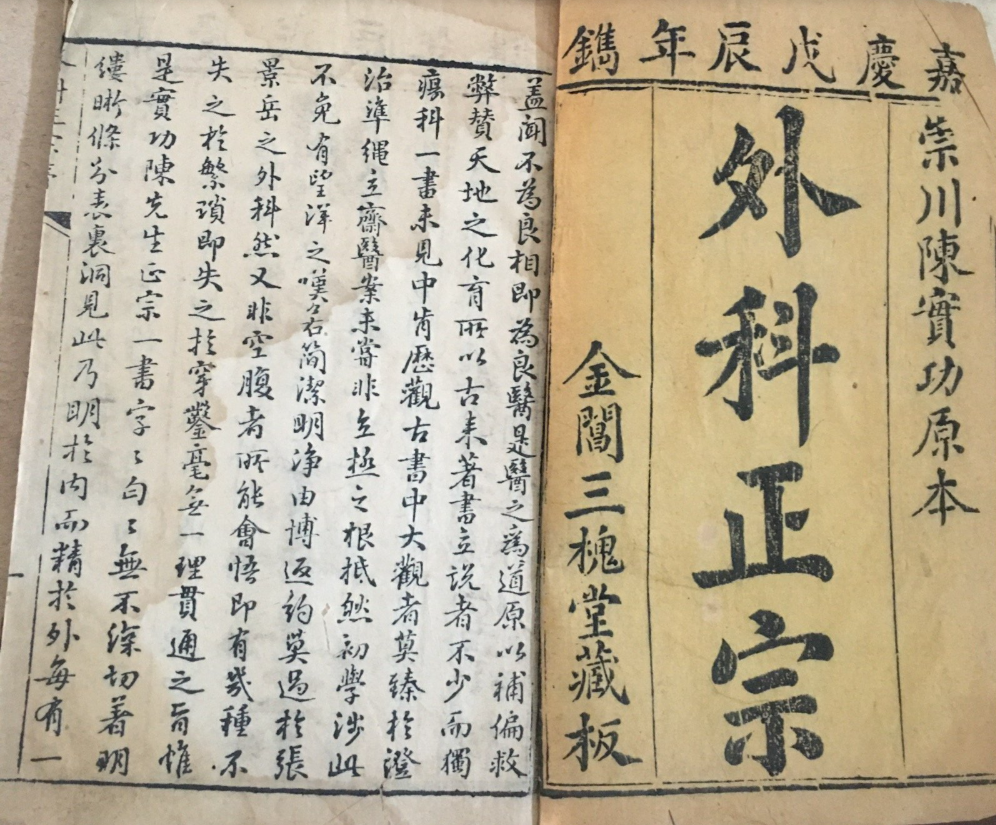 嘉慶戊辰年鐫
崇川陳實功原本
外科正宗
金閶三槐堂藏板
蓋聞不為良相即為良醫是醫之為道原以補偏救
弊贊天地之化育所以古來著書立說者不少而獨
瘍科一書未見中肯歷觀古書中大觀者莫臻於澄
治準繩立齋醫案未嘗非立極之根柢然初學涉此
不免有望洋之嘆若簡潔明淨由博返約莫過於張
景岳之外科然又非空腹者所能會悟即有幾種不
失之於繁瑣即失之於穿鑿毫無一理貫通之旨惟
是實功陳先生正宗一書字〻句〻無不深切著明
縷晰條分表裏洞見此乃明於內而精於外每有一